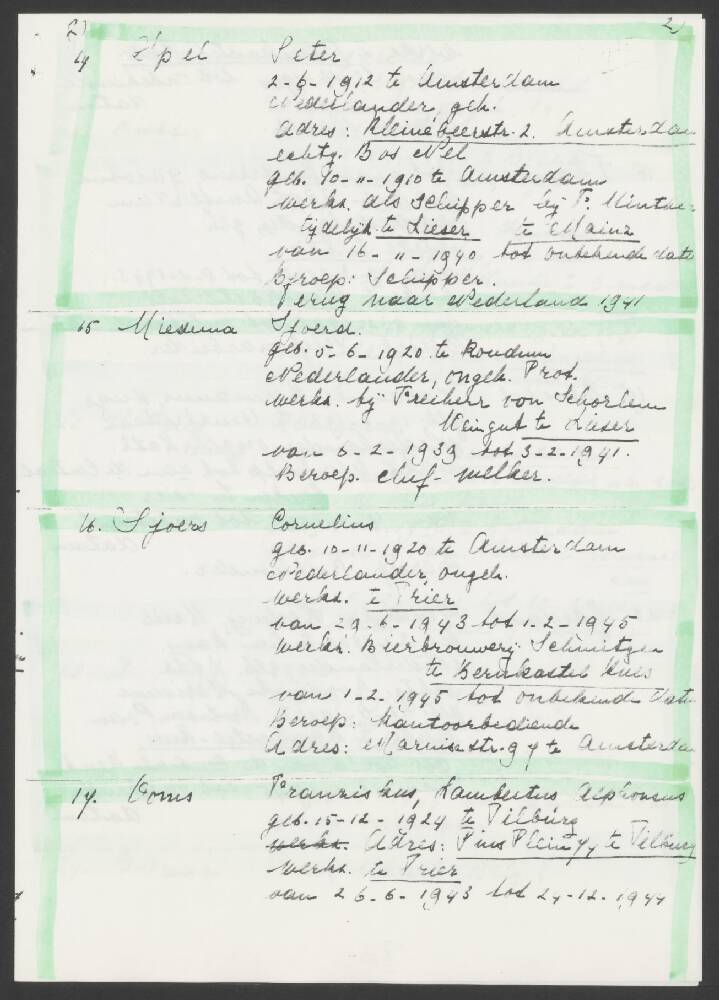 2) 2)
14 Apel Peter
2-6-1912 te Amsterdam
Nederlander, geh.
Adres: Kleine Beerstr. 2. Amsterdam
echtg. Bos Nel
geb. 10-11-1910 te Amsterdam
werkz. als Schipper bij P.
tijdelijk te Lieser te Mainz
van 16-11-1940 tot onbekende dat
Beroep: Schipper.
Terug naar Nederland 1941
15 Miedema Sjoerd.
geb. 5-6-1920 te Koudum
Nederlander, ongeh. Prot.
werkz. bij Freiherr von Schorlem
Weingut te Lieser
van 6-2-1939 tot 3-2-1941.
Beroep. chef-melker.
16. Sjoers Cornelius
geb. 10-11-1920 te Amsterdam
Nederlander, ongeh.
werkz. te Trier
van 29-6-1943 tot 1-2-1945
werkz. Bierbrouwerij Schmitzen
te Bernkastel Kues
van 1-2-1945 tot onbekende dat
Beroep: Kantoorbediende
Adres: Marnixstr. 99 te Amsterdam
17. Ooms Franziskus, Lambertus Alphonsus
geb. 15-12-1924 te Tilburg
werkz. Adres: Pius Plein 74 te Tilburg
werkz. te Trier
van 26-6-1943 tot 24-12-1944